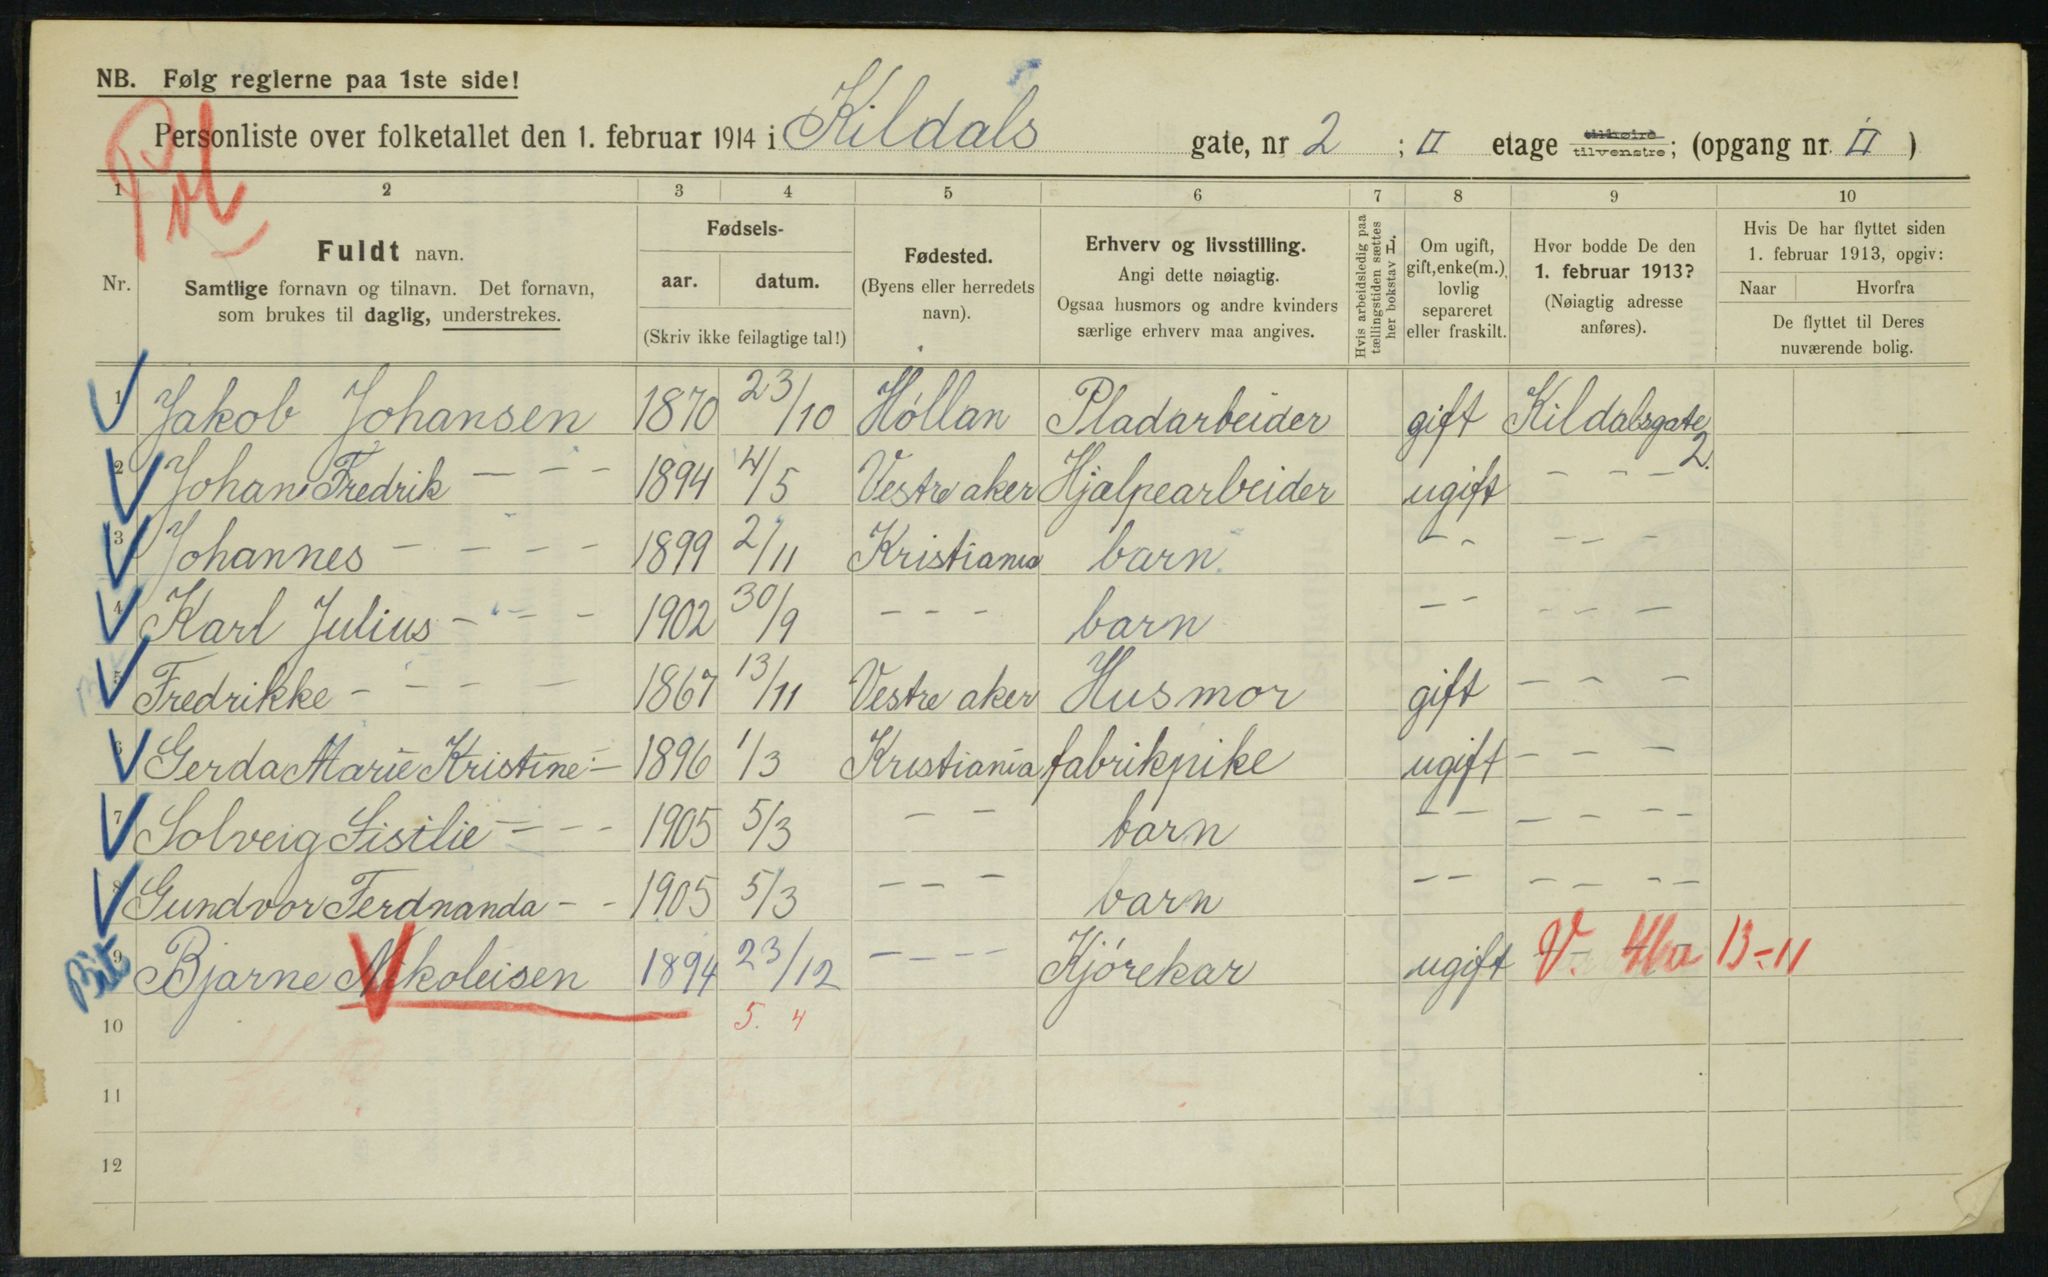 NB. Følg reglerne paa 1ste side!
Personliste over folketallet den 1. februar 1914 i Kildals gate, nr 2 ; II etage tilhøire tilvenstre; (opgang nr. II )
1 2 3 4 5 6 7 8 9 10
Nr.
Fuldt navn.
Samtlige fornavn og tilnavn. Det fornavn,
som brukes til daglig, understrekes.
Fødsels-
aar. datum.
(Skriv ikke feilagtige tal!)
Fødested.
(Byens eller herredets
navn).
Erhverv og livsstilling.
Angi dette nøiagtig.
Ogsaa husmors og andre kvinders
særlige erhverv maa angives.
Hvis arbeidsledig paa
tællingstiden sættes
her bokstav L.
Om ugift,
gift, enke(m.),
lovlig
separeret
eller fraskilt.
Hvor bodde De den
1. februar 1913?
(Nøiagtig adresse
anføres).
Hvis De har flyttet siden
1. februar 1913, opgiv:
Naar Hvorfra
De flyttet til Deres
nuværende bolig.
1 Jakob Johansen 1870 23/10 Hóllan Pladarbeider gift Kildalsgate 2.
2 Johan Fredrik - - - 1894 4/5 Vestre aker Hjælpearbeider ugift - - -
3 Johannes - - - - 1899 2/11 Kristiania barn. - - - - -
4 Karl Julius - - - 1902 30/9 - - - barn - - - - -
5 Fredrikke - - - - 1867 13/11 Vestre aker Husmor gift - - -
6 Gerda Marie Kristine - 1896 1/3 Kristiania fabrikpike ugift - - -
7 Solveig Sisilie - - - 1905 5/3 - - barn - - - - - -
8 Gundvor Ferdnanda - - 1905 5/3 - - - barn - - - - - -
9 Bjarne Nikoleisen 1894 23/12 - - - - Kjórekar ugift V. 46a 13-11
10 5. 4
11
12